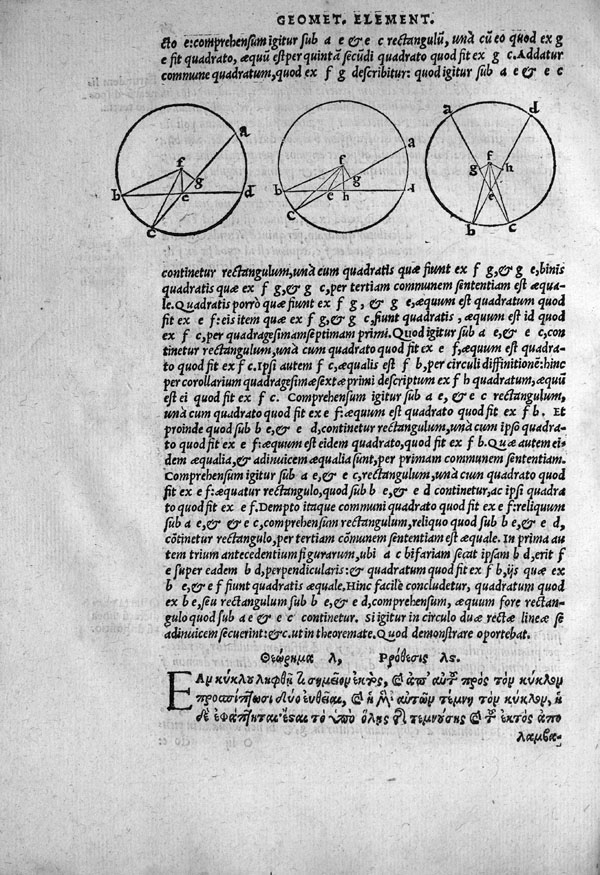 GEOMET. ELEMENT.
cto e: comprehensum igitur sub a e & e c rectangulũ, unà cũ eo quod ex g
e fit quadrato, æquũ est per quintã secũdi quadrato quod fit ex g c. Addatur
commune quadratum, quod ex f g describitur: quod igitur sub a e & e c
a
f
g
b
e
d
c
a
f
g
b
e
h
d
c
a
d
f
g
h
e
b
c
continetur rectangulum, unà cum quadratis quæ fiunt ex f g, & g e, binis
quadratis quæ ex f g, & g c, per tertiam communem sententiam est æqua-
le. Quadratis porrò quæ fiunt ex f g, & g e, æquum est quadratum quod
fit ex e f: eis item quæ ex f g, & g c, fiunt quadratis, æquum est id quod
ex f c, per quadragesimamseptimam primi. Quod igitur sub a e, & e c, con
tinetur rectangulum, unà cum quadrato quod fit ex e f, æquum est quadra-
to quod fit ex f c. Ipsi autem f c, æqualis est f b, per circuli diffinitionẽ: hinc
per corollarium quadragesimæsextæ primi descriptum ex f h quadratum, æquũ
est ei quod fit ex f c. Comprehensum igitur sub a e, & e c rectangulum,
unà cum quadrato quod fit ex e f: æquum est quadrato quod fit ex f b. Et
proinde quod sub b e, & e d, continetur rectangulum, unà cum ipso quadra-
to quod fit ex e f: æquum est eidem quadrato, quod fit ex f b. Quæ autem ei-
dem æqualia, & adinuicem æqualia sunt, per primam communem sententiam.
Comprehensum igitur sub a e, & e c, rectangulum, unà cum quadrato quod
fit ex e f: æquatur rectangulo, quod sub b e, & e d continetur, ac ipsi quadra
to quod fit ex e f. Dempto itaque communi quadrato quod fit ex e f: reliquum
sub a e, & e c, comprehensum rectangulum, reliquo quod sub b e, & e d,
cõtinetur rectangulo, per tertiam cõmunem sententiam est æquale. In prima au
tem trium antecedentium figurarum, ubi a c bifariam secat ipsam b d, erit f
e super eadem b d, perpendicularis: & quadratum quod fit ex f b, ijs quæ ex
b e, & e f fiunt quadratis æquale. Hinc facilè concludetur, quadratum quod
ex b e, seu rectangulum sub b e, & e d, comprehensum, æquum fore rectan-
gulo quod sub a e & e c continetur. Si igitur in circulo duæ rectæ lineæ se
adinuicem secuerint: & c. ut in theoremate. Quod demonstrare oportebat.
Θεώρημα λ, Πρόθεσις λς.
Εαν κύκλου ληφθῇ τι σημεῖον ἐκτὸς, καὶ ἀπ' αὐτοῦ πρὸς τὸν κύκλον
προσπίπτωσι δύο ευθεῖαι, καὶ ἡ μὲν αὐτῶν τέμνῃ τὸν κύκλον, ἡ
δὲ ἐφάπτηται· ἔσται τὸ ὑπὸ ὅλης τῆς τεμνούσης καὶ τῆς ἐκτὸς ἀπο
λαμβα-